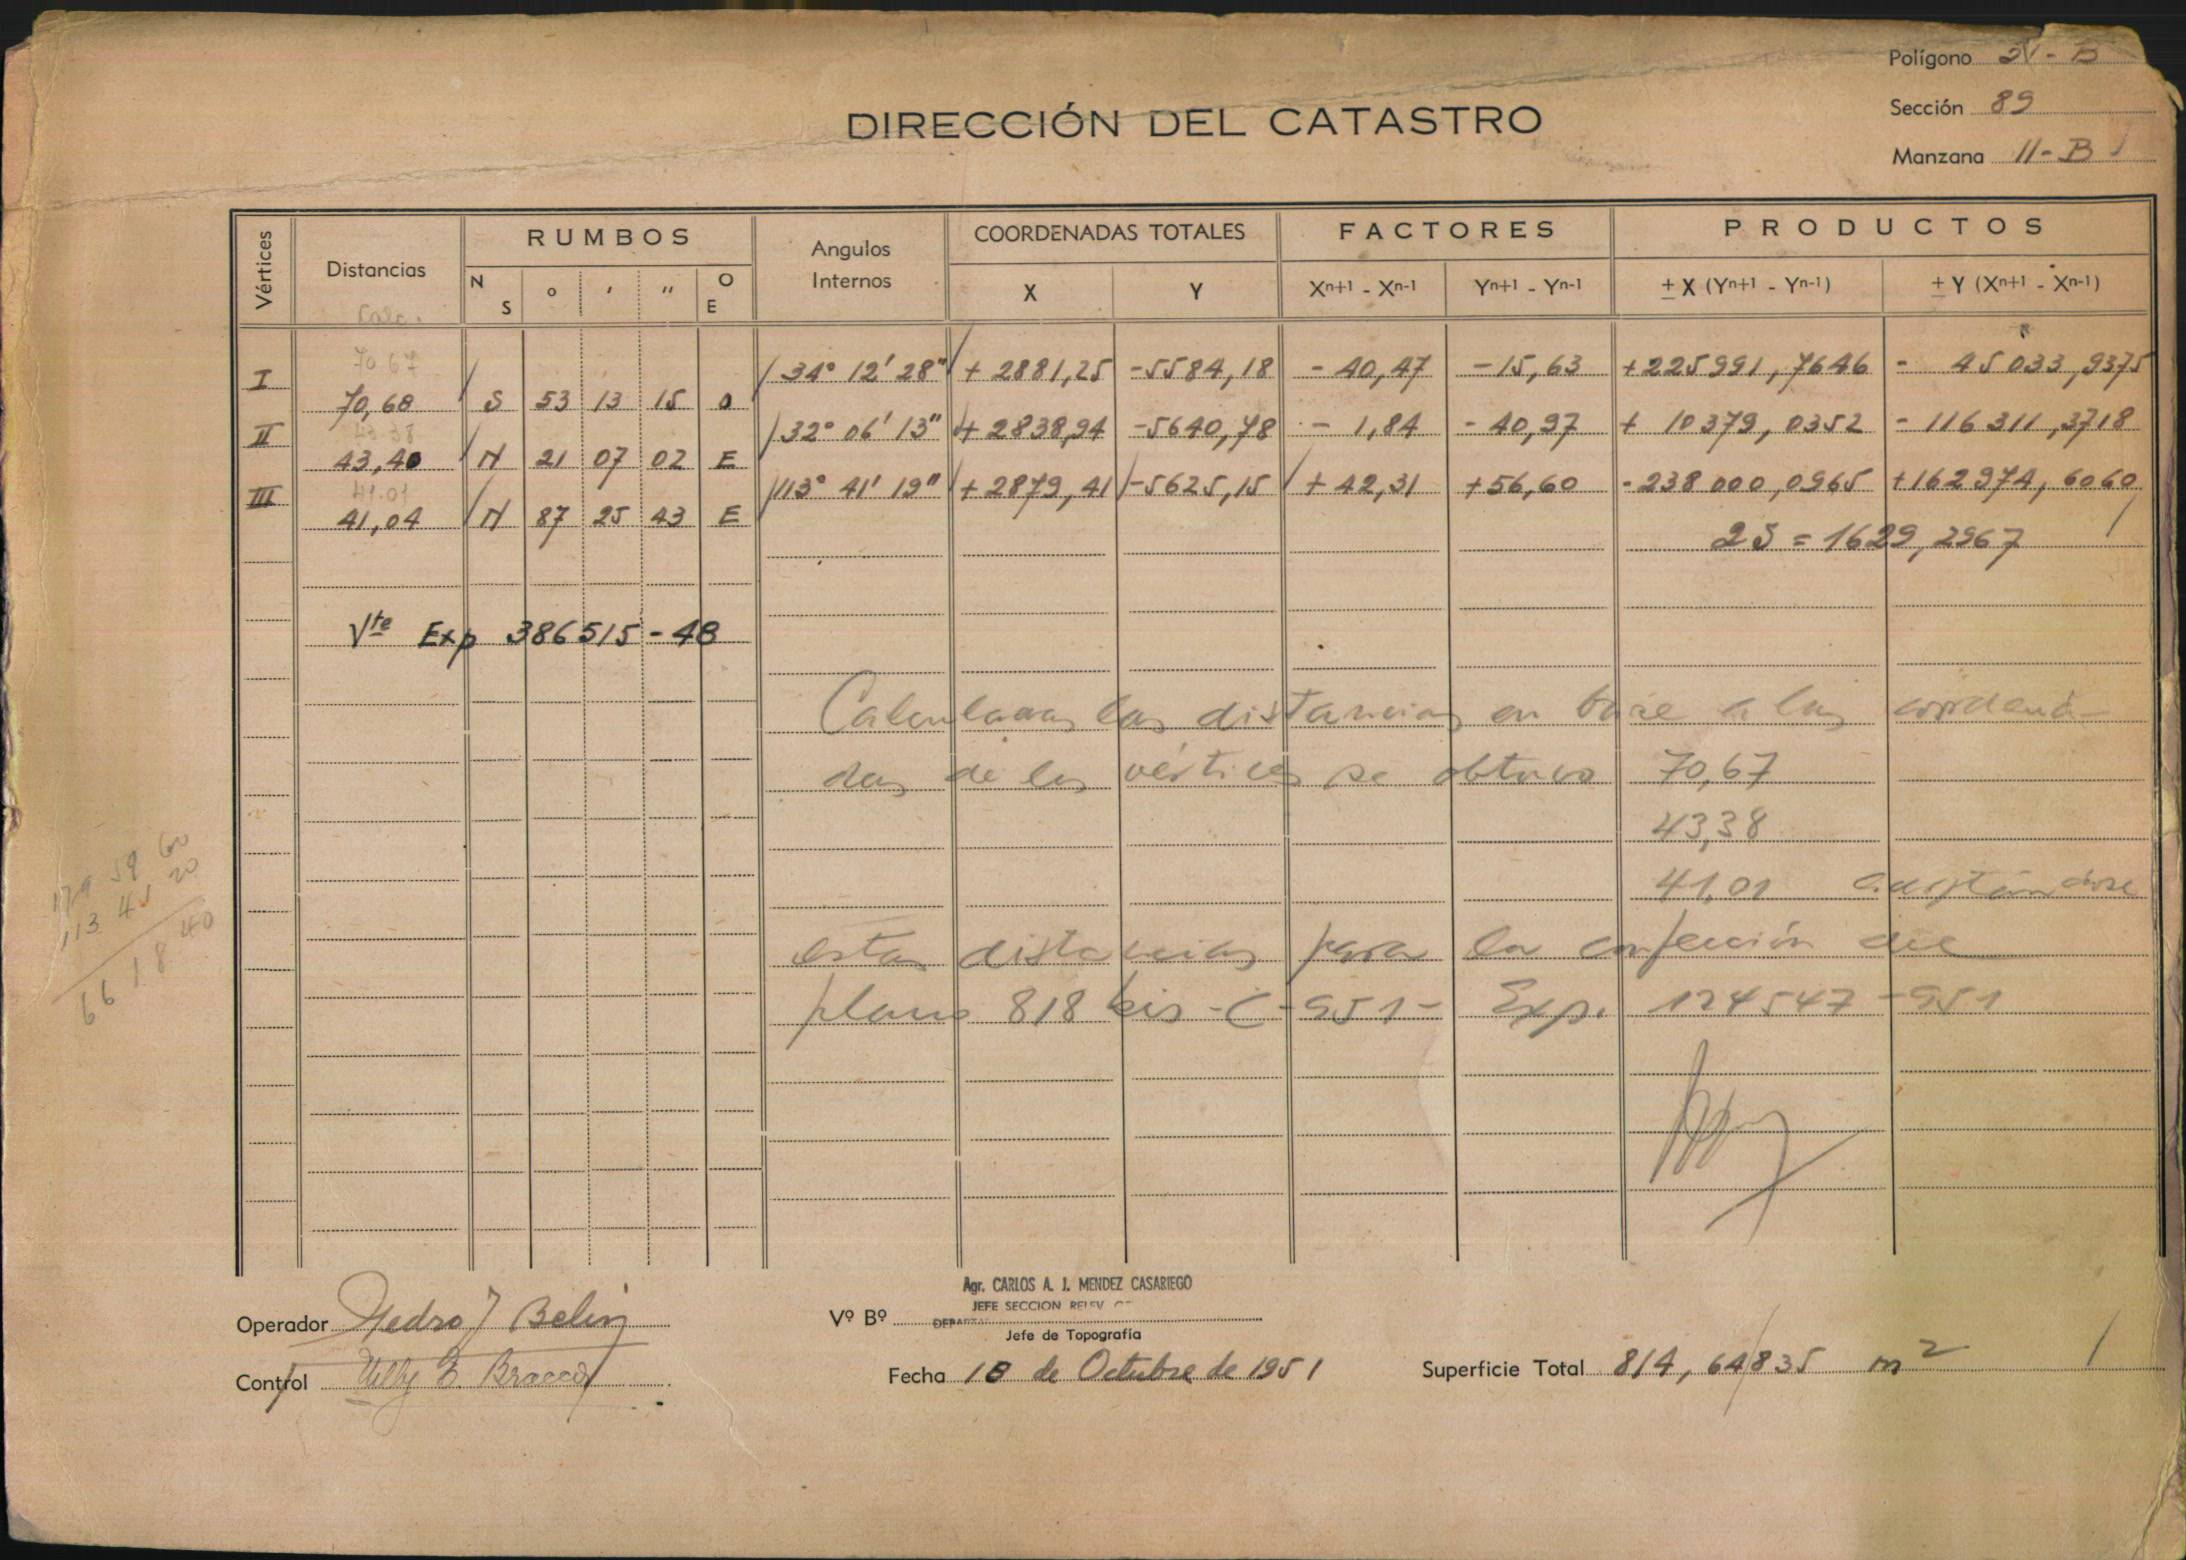 Polígono 21-B
Sección 89
Manzana 11-B
DIRECCIÓN DEL CATASTRO
Vértices Distancias RUMBOS Angulos Internos COORDENADAS TOTALES FACTORES PRODUCTOS
Calc.
N S ° ' " O E X Y Xn+1 - Xn-1 Yn+1 - Yn-1 ± X (Yn+1 - Yn-1) ± Y (Xn+1 - Xn-1)
70.67
I 34° 12' 28" + 2881,25 -5584,18 - 40,47 - 15,63 +225991,7646 - 45033,9375
70,68 S 53 13 15 O
43.38
II 32° 06' 13" + 2838,94 -5640,78 - 1,84 - 40,97 + 10379,0352 - 116311,3718
43,40 N 21 07 02 E
41.01
III 113° 41' 19" + 2879,41 -5625,15 + 42,31 +56,60 -238000,0965 +162974,6060
41,04 N 87 25 43 E
2S = 1629,2967
Vte Exp 386515-48
Calculadas las distancias en base a las coordena-
das de los vértices se obtuvo 70,67
43,38
41,01 ajustándose
estas distancias para la confección del
plano 818 bis -C-951- Exp. 124547-951
179 59 60
113 41 20
66 18 40
Operador Pedro J Belin
Control
Agr. CARLOS A. J. MENDEZ CASARIEGO
JEFE SECCION RELEV
Vº Bº
Jefe de Topografía
Fecha 18 de Octubre de 1951
Superficie Total 814,64835 m2